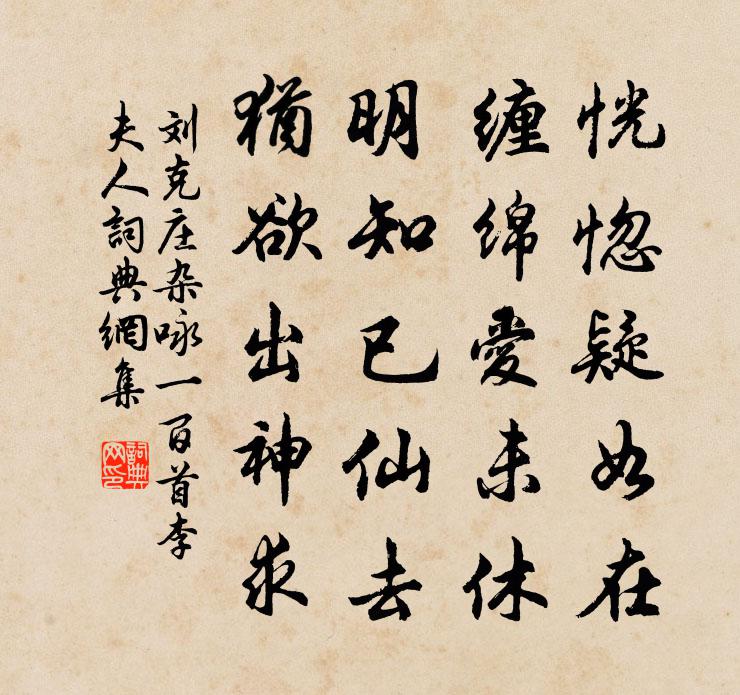 恍惚疑如在
纏綿愛未休
明知已仙去
猶欲出神求
刘克庄杂咏一百首李
夫人詞典網集
詞典
网印